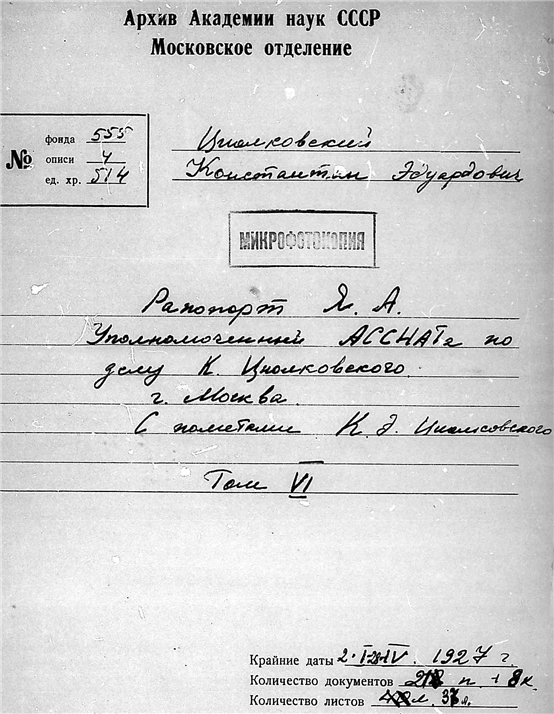 Архив Академии наук СССР
Московское отделение
№
фонда 555
описи 4
ед. хр. 514
Циолковский
Константин Эдуардович
МИКРОФОТОКОПИЯ
Рапопорт Я. А.
Уполномоченный АССНАТа по
делу К. Циолковского.
г. Москва.
С пометами К. Э. Циолковского
Том VI
Крайние даты 1927 г.
Количество документов п. + 8 к.
Количество листов л.